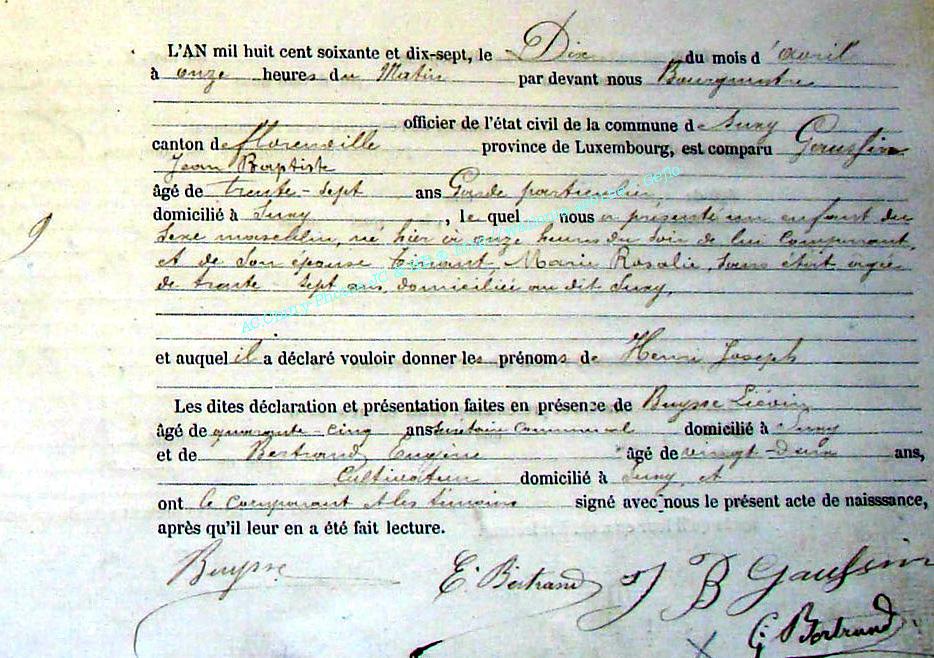 L'AN mil huit cent soixante et dix-sept, le Dix du mois d'avril
à onze heures du Matin par devant nous Bourgmestre
officier de l'état civil de la commune de Suxy
canton de Florenville province de Luxembourg, est comparu Gaussin
Jean Baptiste
âgé de trente-sept ans Garde particulier,
domicilié à Suxy, lequel nous a présenté un enfant du
sexe masculin, né hier à onze heures du soir de lui comparant,
et de son épouse Tinant, Marie Rosalie, sans état, agée
de trente-sept ans, domiciliée au dit Suxy,
et auquel il a déclaré vouloir donner les prénoms de Henri Joseph
Les dites déclaration et présentation faites en présence de Buysse Liévin
âgé de quarante-cinq ans secrétaire communal domicilié à Suxy
et de Bertrand Eugène âgé de vingt-deux ans,
Cultivateur domicilié à Suxy, et
ont le comparant et les témoins signé avec nous le présent acte de naisssance,
après qu'il leur en a été fait lecture.
Buysse E. Bertrand J B Gaussin
G. Bertrand